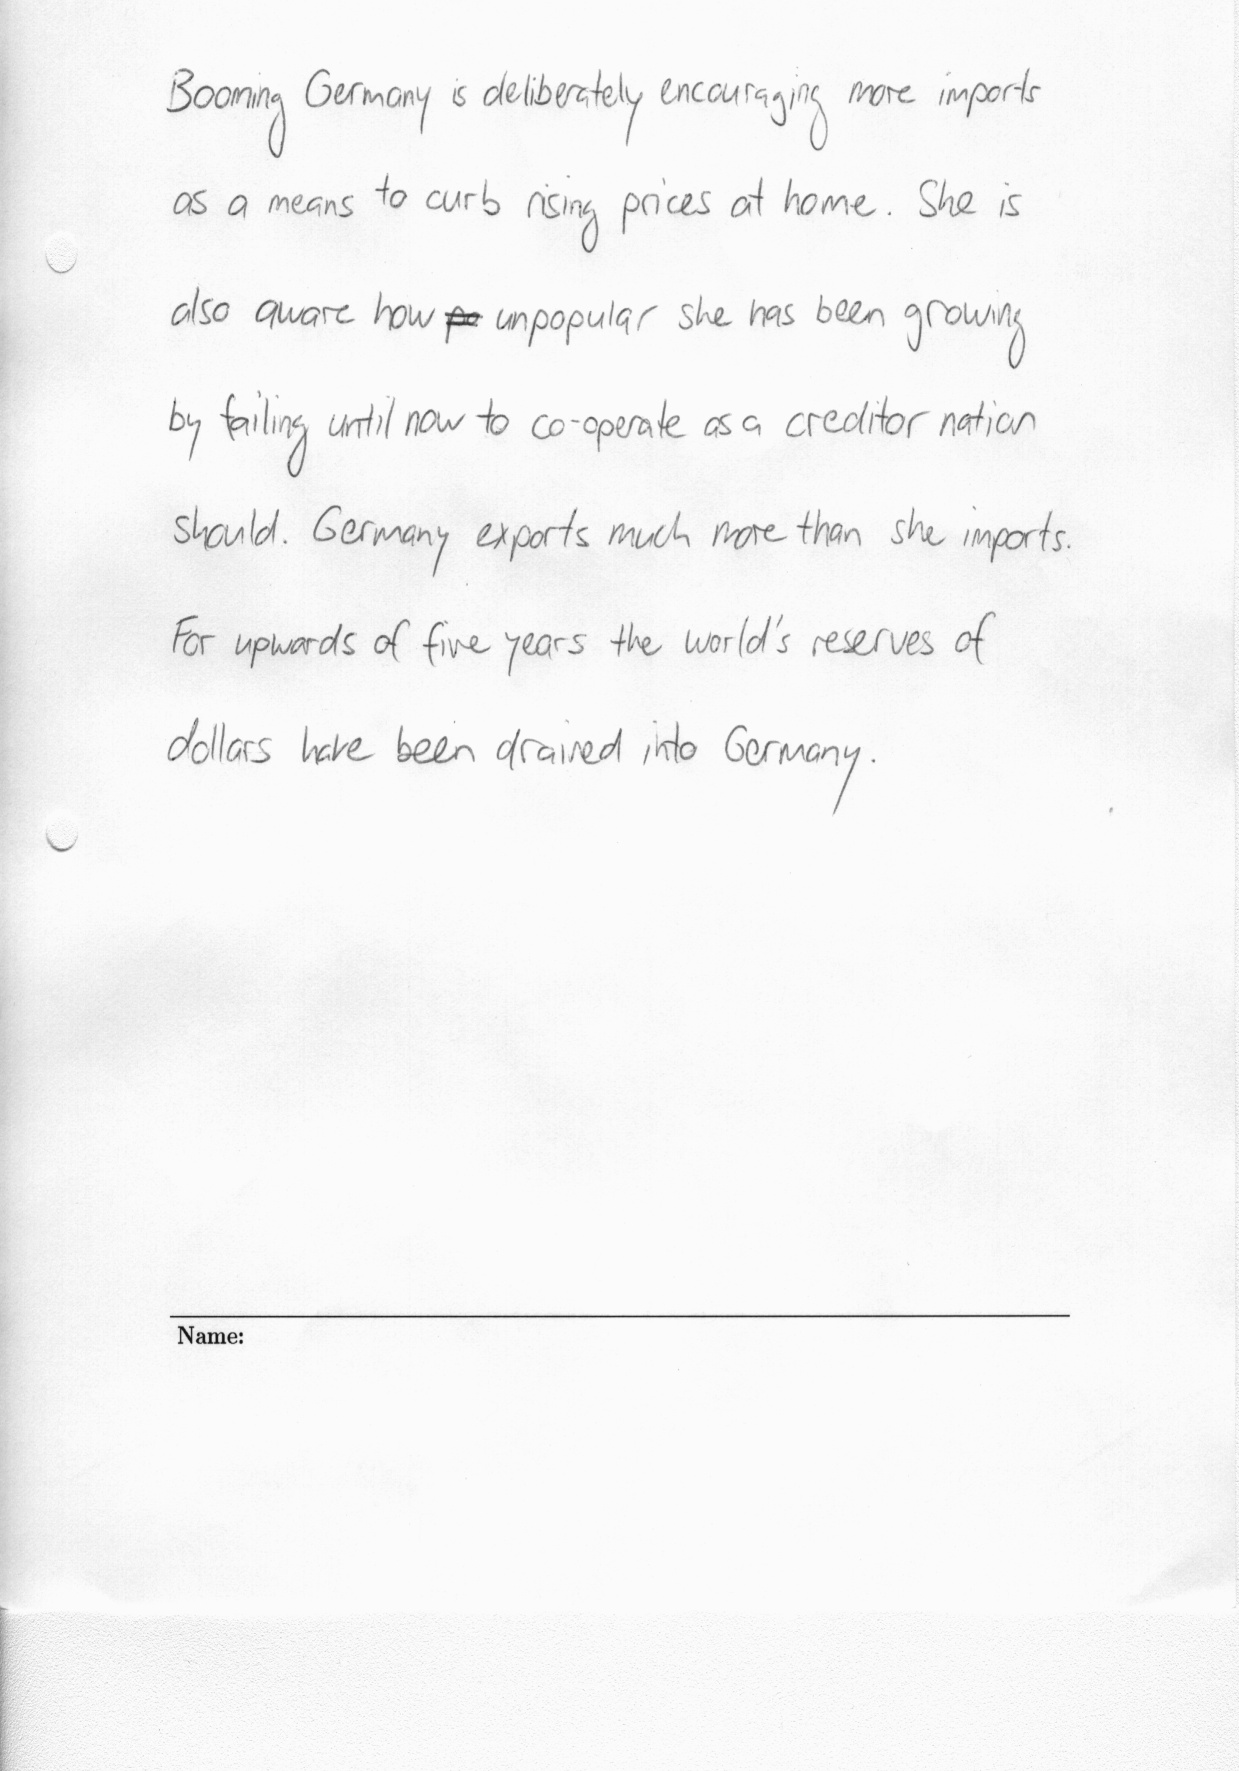 Booming Germany is deliberately encouraging more imports
as a means to curb rising prices at home. She is
also aware how unpopular she has been growing
by failing until now to co-operate as a creditor nation
should. Germany exports much more than she imports.
For upwards of five years the world's reserves of
dollars have been drained into Germany.
Name: